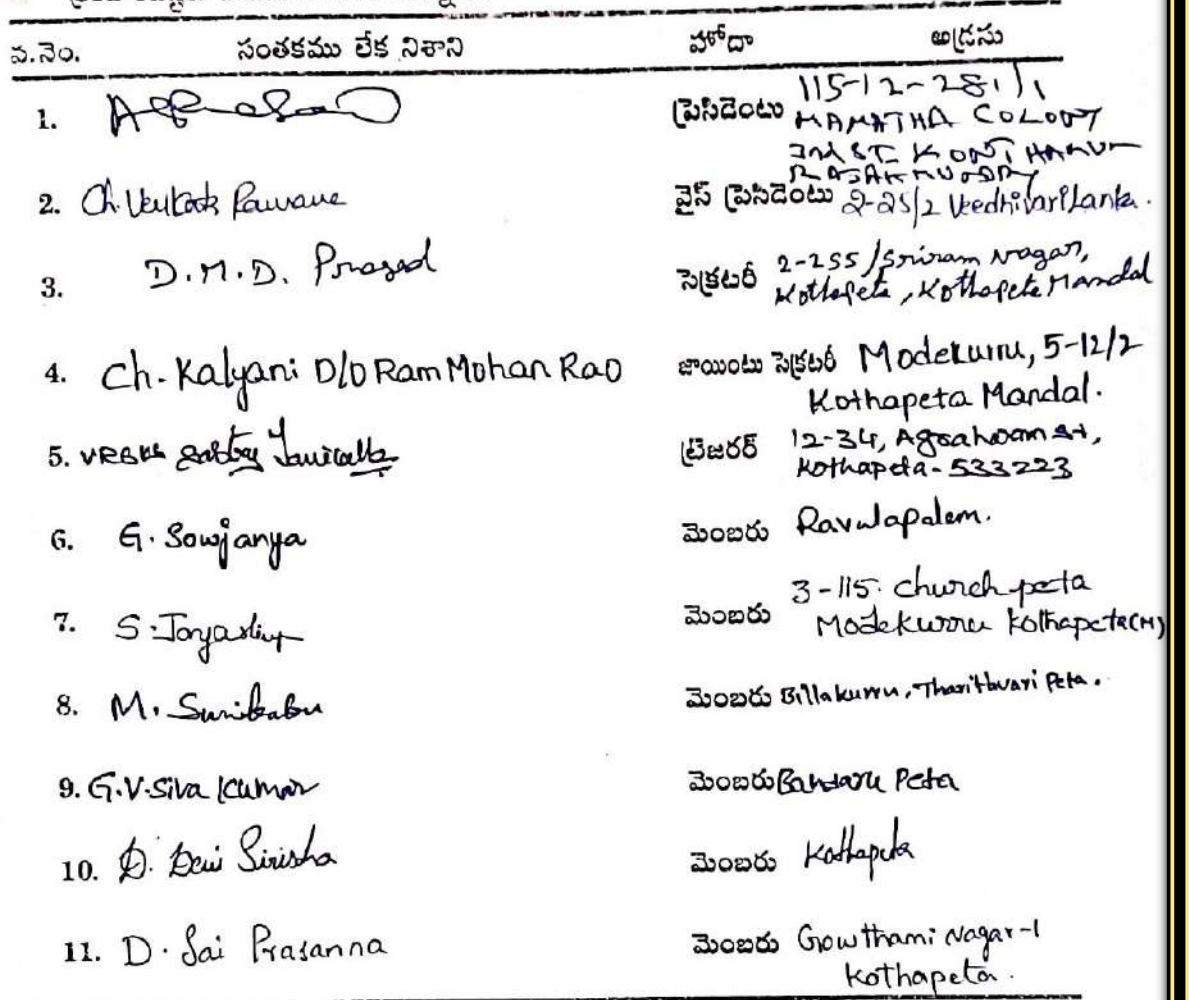 వ.నెం. సంతకము లేక నిశాని హోదా అడ్రసు
1. ప్రెసిడెంటు 115-12-281/1
MAMATHA COLONY
2nd ST.
RAJAHMUNDRY
2. Ch. Venkata Ramana వైస్ ప్రెసిడెంటు 2-25/2 VeedhivariLanka.
3. D.M.D. Prasad సెక్రటరీ 2-255/Sriram Nagar,
Kothapeta, Kothapeta Mandal
4. Ch. Kalyani D/O Ram Mohan Rao జాయింటు సెక్రటరీ Modekurru, 5-12/2
Kothapeta Mandal.
5. Sastry ట్రెజరర్ 12-34, Agraharam St,
Kothapeta- 533223
6. G. Sowjanya మెంబరు Ravulapalem.
7. S. మెంబరు 3-115. Church peta
Modekurru Kothapeta(M)
8. M. Sunilbabu మెంబరు Billakurru, Peta.
9. G.V. Siva Kumar మెంబరు Bandaru Peta
10. D. Devi Sirisha మెంబరు Kothapeta
11. D. Sai Prasanna మెంబరు Gowthami Nagar-1
Kothapeta.